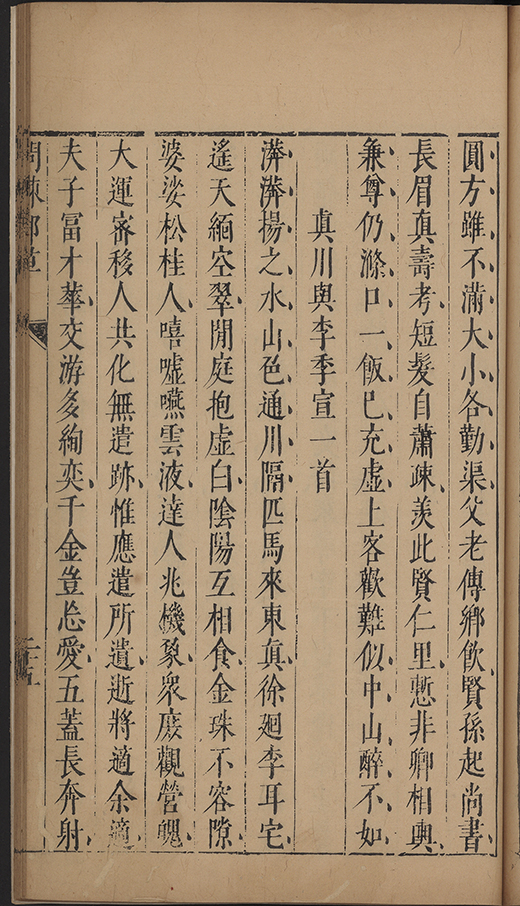 圓方雖不滿大小各勤渠父老傳鄉飲賢孫起尚書
長眉真壽考短髮自蕭疎羨此賢仁里慙非卿相輿
兼尊仍滌口一飯已充虛上客歡難似中山醉不如
真川與李季宣一首
漭漭揚之水山色通川隔匹馬來東真徐廻李耳宅
遙天緬空翠閒庭抱虛白陰陽互相食金珠不容隙
婆娑松桂人嘻噓嚥雲液達人兆機象衆廢觀營魄
大運審移人共化無遣跡惟應遣所遺逝將適余適
夫子冨才華交游多絢奕千金豈忘愛五蓋長奔射